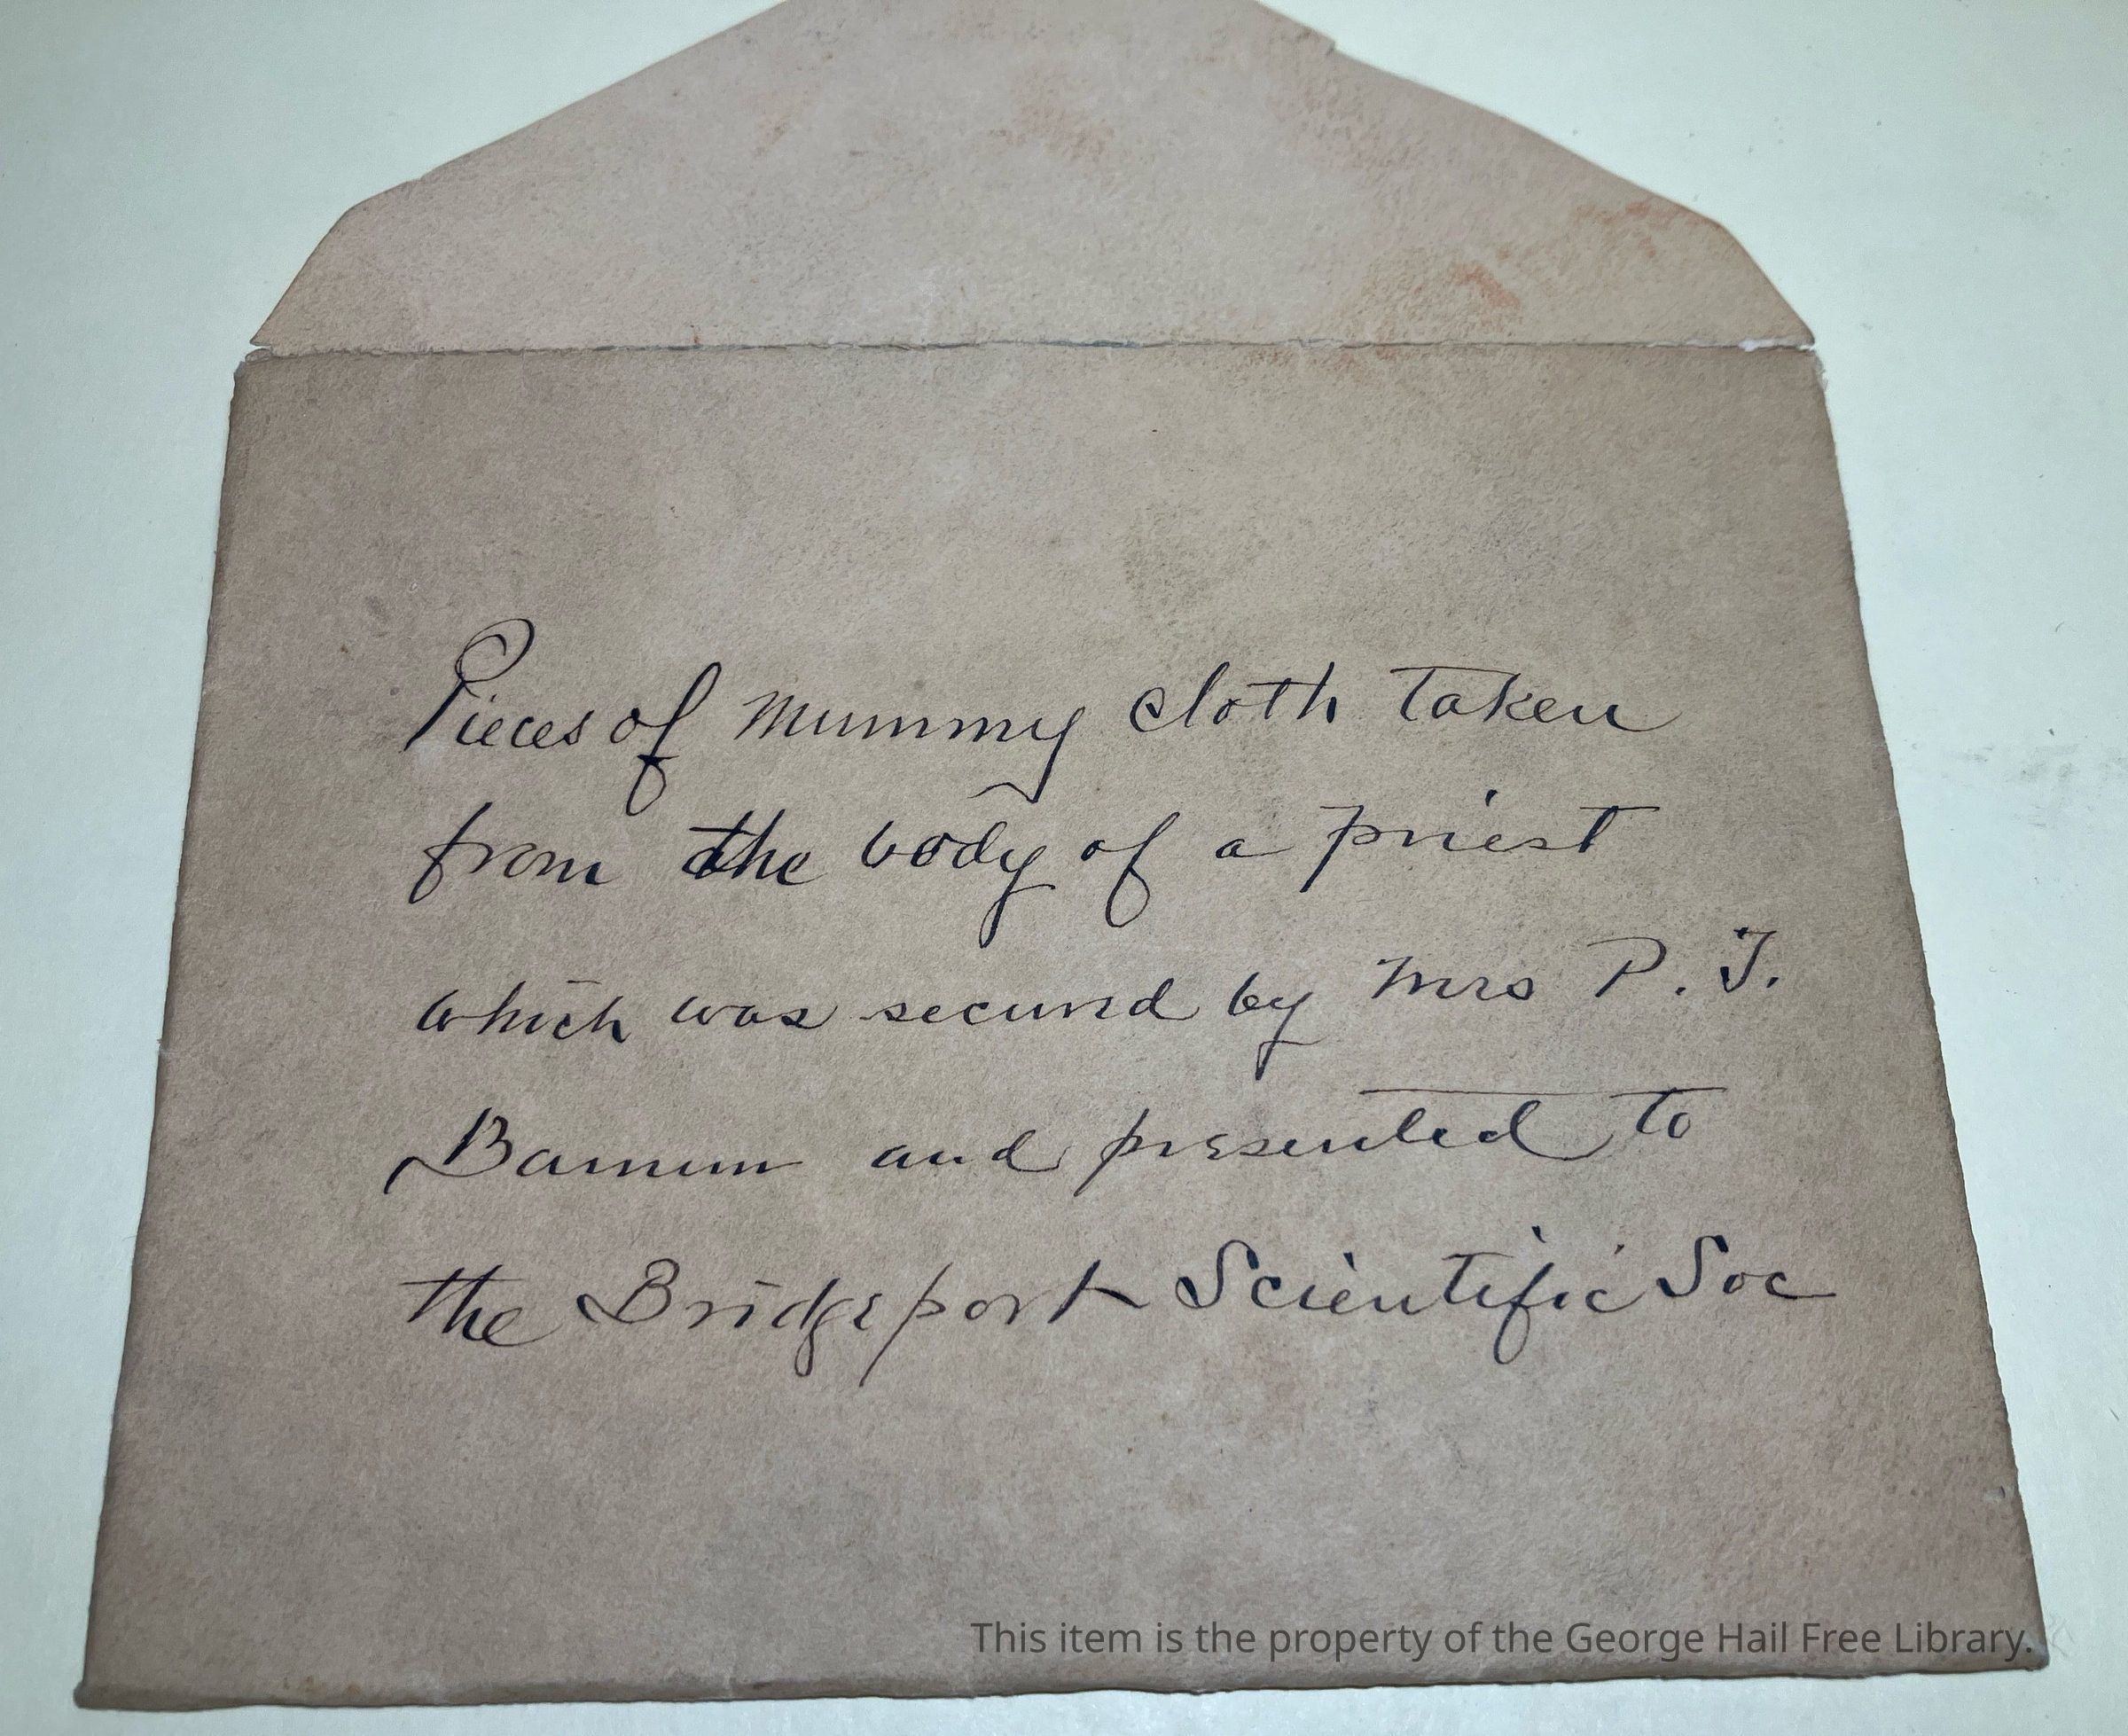 Pieces of mummy cloth taken
from the body of a priest
which was secured by Mrs P. T.
Barnum and presented to
the Bridgeport Scientific Soc
This item is the property of the George Hail Free Library.